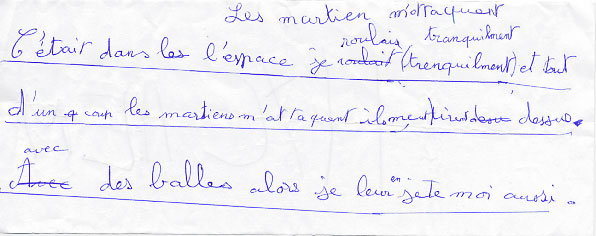 Les martien m'attaquent
roulais, tranquilment
C'était dans les l'espace je roulait (trenquilment) et tout
d'un q coup les martiens m'attaquent ils me tirent dessus.
avec
Avec des balles alors je leur en jete moi aussi.